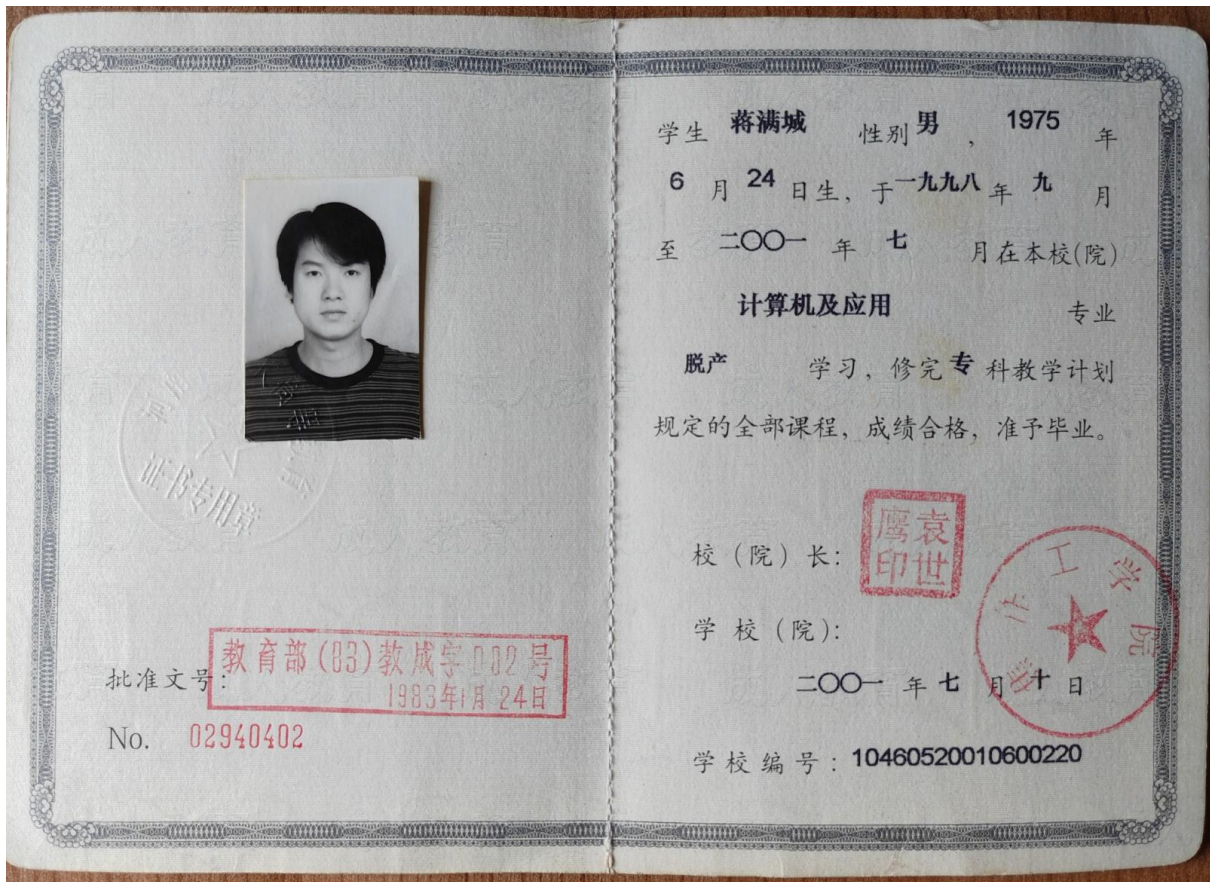 证书专用章
批准文号:
教育部(83)教成字002号
1983年1月24日
No. 02940402
学生 蒋满城 性别 男 , 1975 年
6 月 24 日生, 于 一九九八 年 九 月
至 二〇〇一 年 七 月在本校(院)
计算机及应用 专业
脱产 学习, 修完 专 科教学计划
规定的全部课程, 成绩合格, 准予毕业。
校(院)长:
袁世鹰印
学校(院):
焦作工学院
二〇〇一 年 七 月 十 日
学校编号: 10460520010600220